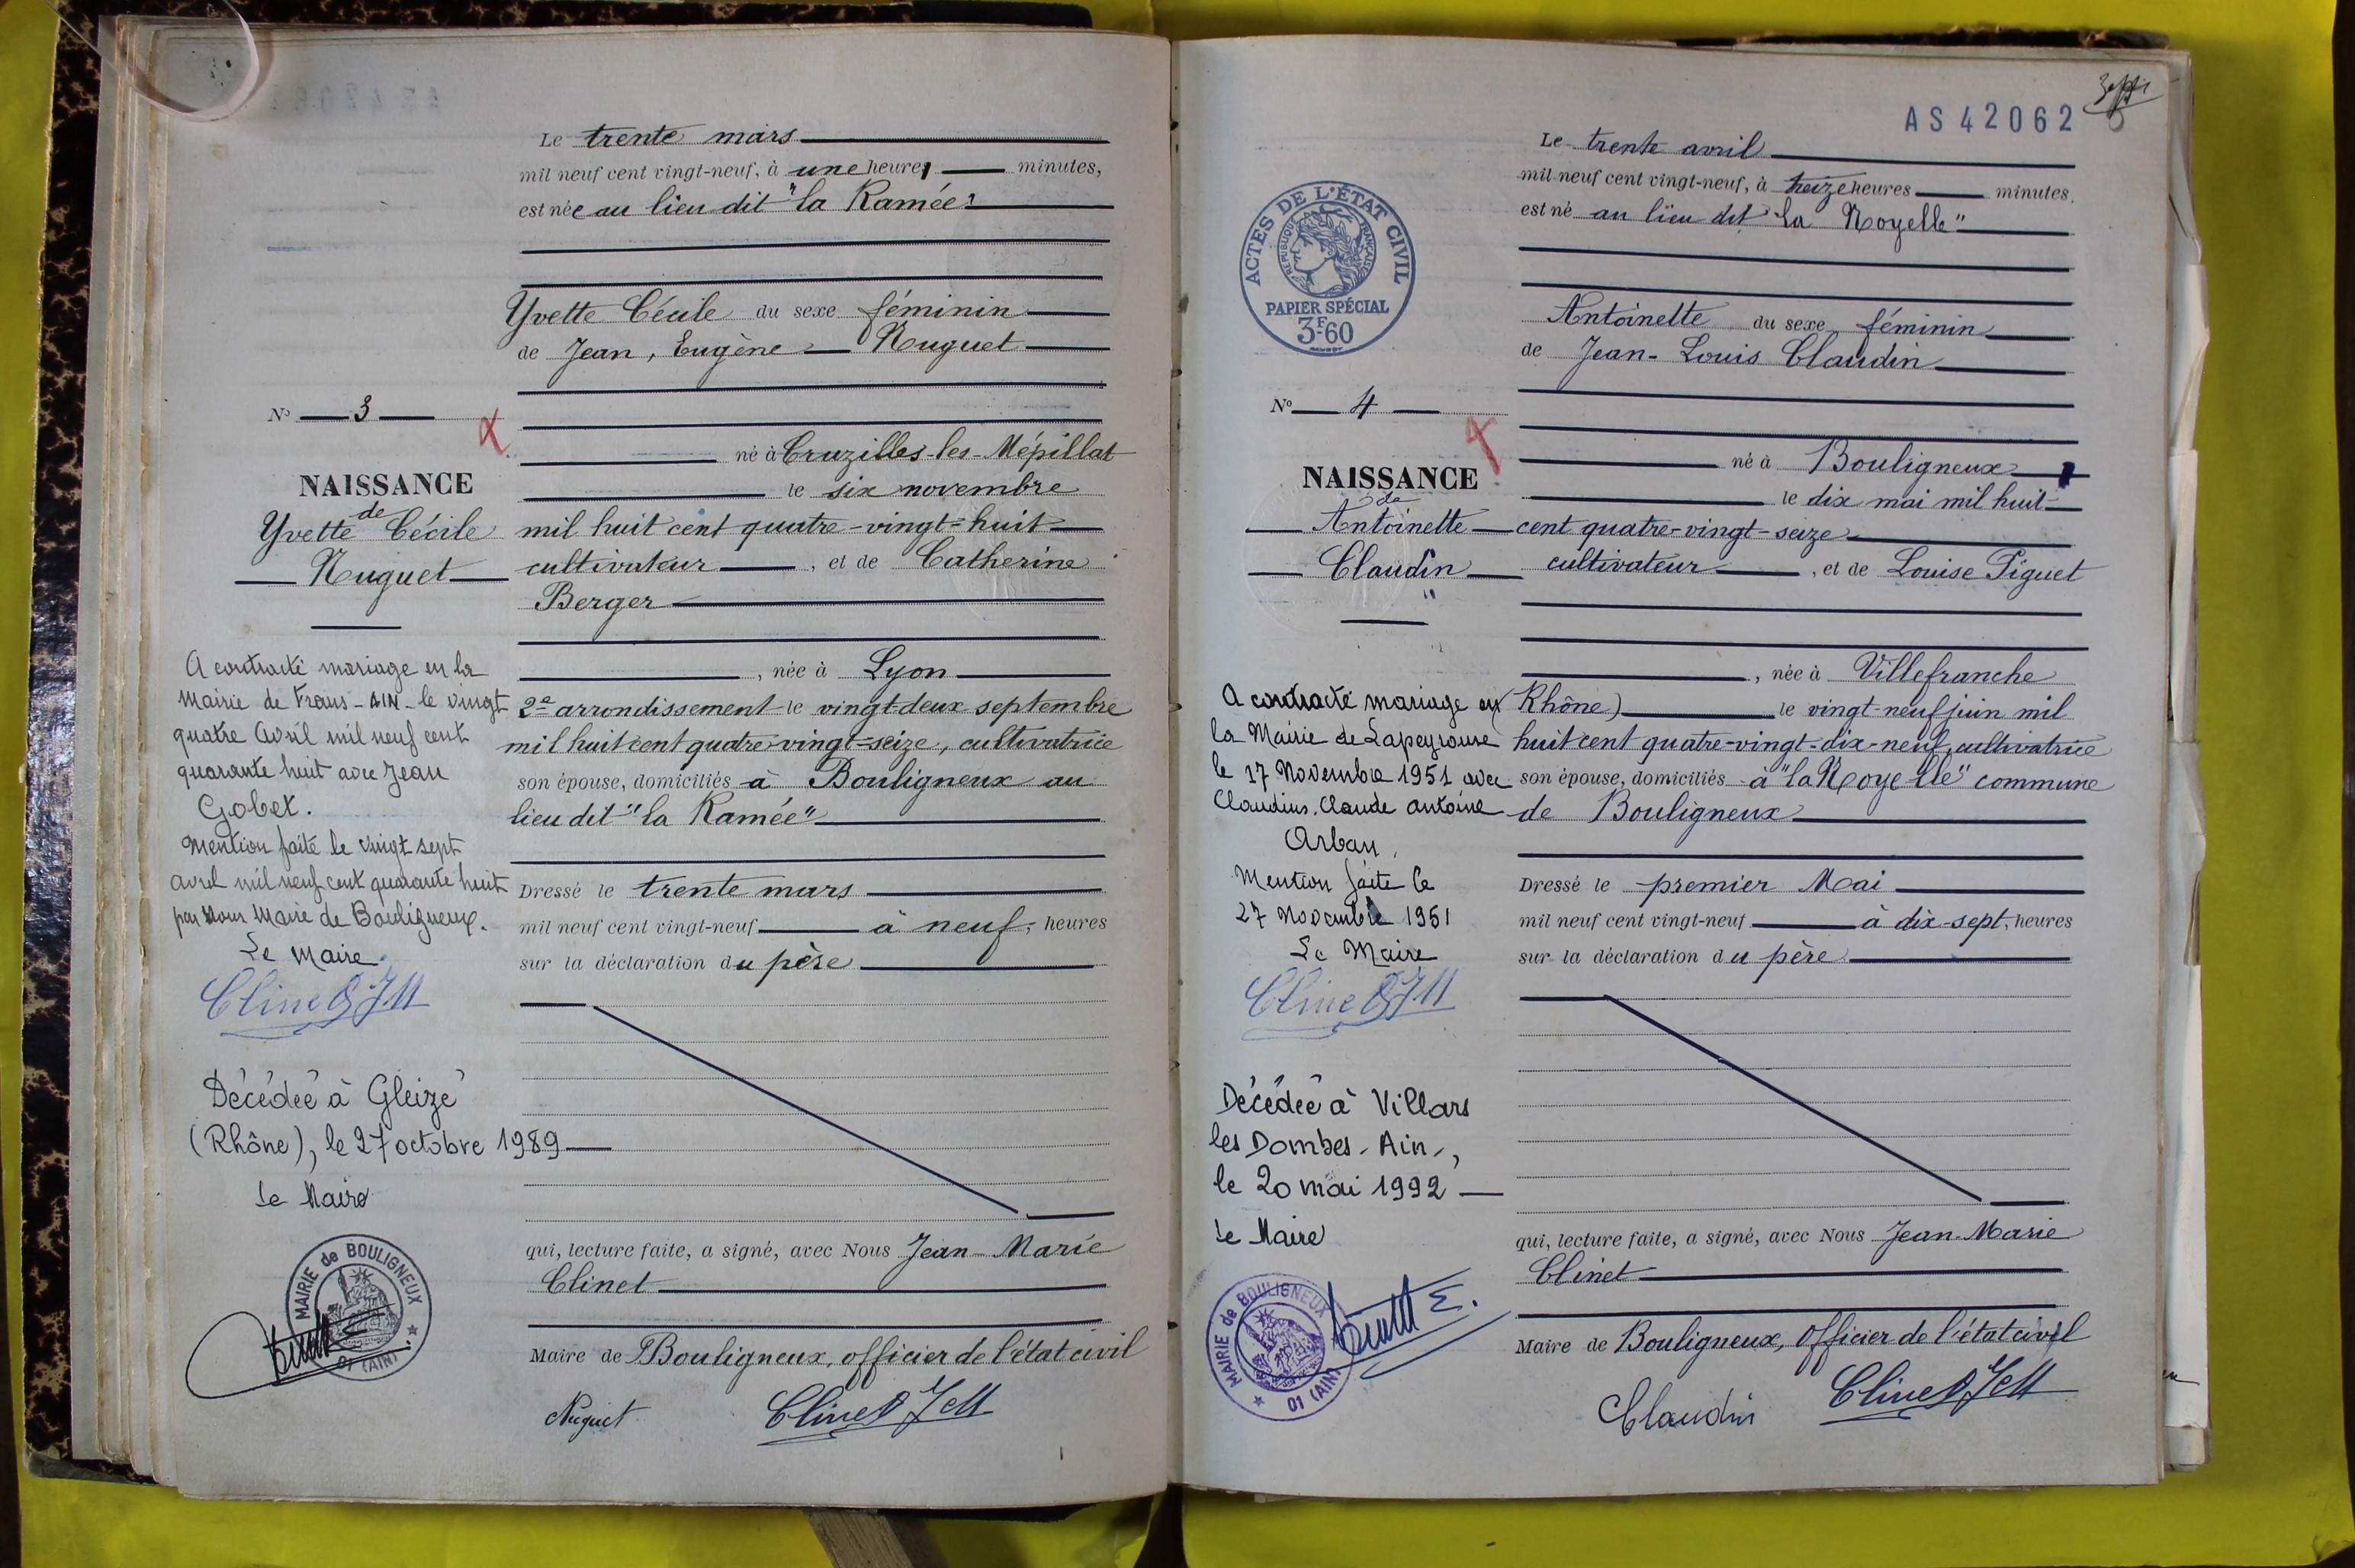 Le trente mars
mil neuf cent vingt-neuf, à une heure, minutes,
est née au lieu dit "la Ramée"
Yvette Cécile du sexe féminin
de Jean, Eugène Nuguet
N° 3
né à Cruzilles-les-Mépillat
le six novembre
NAISSANCE
de
Yvette Cécile
Nuguet
mil huit cent quatre-vingt-huit
cultivateur, et de Catherine
Berger
, née à Lyon
2e arrondissement le vingt-deux septembre
mil huit cent quatre-vingt-seize, cultivatrice
son épouse, domiciliés à Bouligneux au
lieu dit "la Ramée"
Dressé le trente mars
mil neuf cent vingt-neuf à neuf, heures
sur la déclaration du père
qui, lecture faite, a signé, avec Nous Jean-Marie
Clinet
Maire de Bouligneux, officier de l'état civil
Nuguet Clinet JM
A contracté mariage en la
Mairie de Frans-AIN-le vingt
quatre Avril mil neuf cent
quarante huit avec Jean
Gobet.
Mention faite le vingt sept
avril mil neuf cent quarante huit
par Nous Maire de Bouligneux.
Le Maire
Clinet JM
Décédée à Gleizé
(Rhône), le 27 octobre 1989
Le Maire
MAIRIE de BOULIGNEUX
01 (AIN)
AS 42062
Le trente avril
mil neuf cent vingt-neuf, à treize heures minutes.
est né au lieu dit "la Noyelle"
ACTES DE L'ÉTAT CIVIL
REPUBLIQUE FRANCAISE
PAPIER SPÉCIAL
3F60
Antoinette du sexe féminin
de Jean-Louis Claudin
N° 4
né à Bouligneux
le dix mai mil huit-
NAISSANCE
de
Antoinette
Claudin
cent quatre-vingt-seize
cultivateur, et de Louise Piguet
, née à Villefranche
(Rhône) le vingt-neuf juin mil
huit cent quatre-vingt-dix-neuf, cultivatrice
son épouse, domiciliés à "la Noyelle" commune
de Bouligneux
Dressé le premier Mai
mil neuf cent vingt-neuf à dix-sept, heures
sur la déclaration du père
qui, lecture faite, a signé, avec Nous Jean-Marie
Clinet
Maire de Bouligneux, Officier de l'état civil
Claudin Clinet JM
A contracté mariage en
la Mairie de Lapeyrouse
le 17 Novembre 1951 avec
Claudius, Claude Antoine
Arban,
Mention faite le
27 Novembre 1951
Le Maire
Clinet JM
Décédée à Villars
les Dombes-Ain-,
le 20 mai 1992
Le Maire
MAIRIE de BOULIGNEUX
01 (AIN)